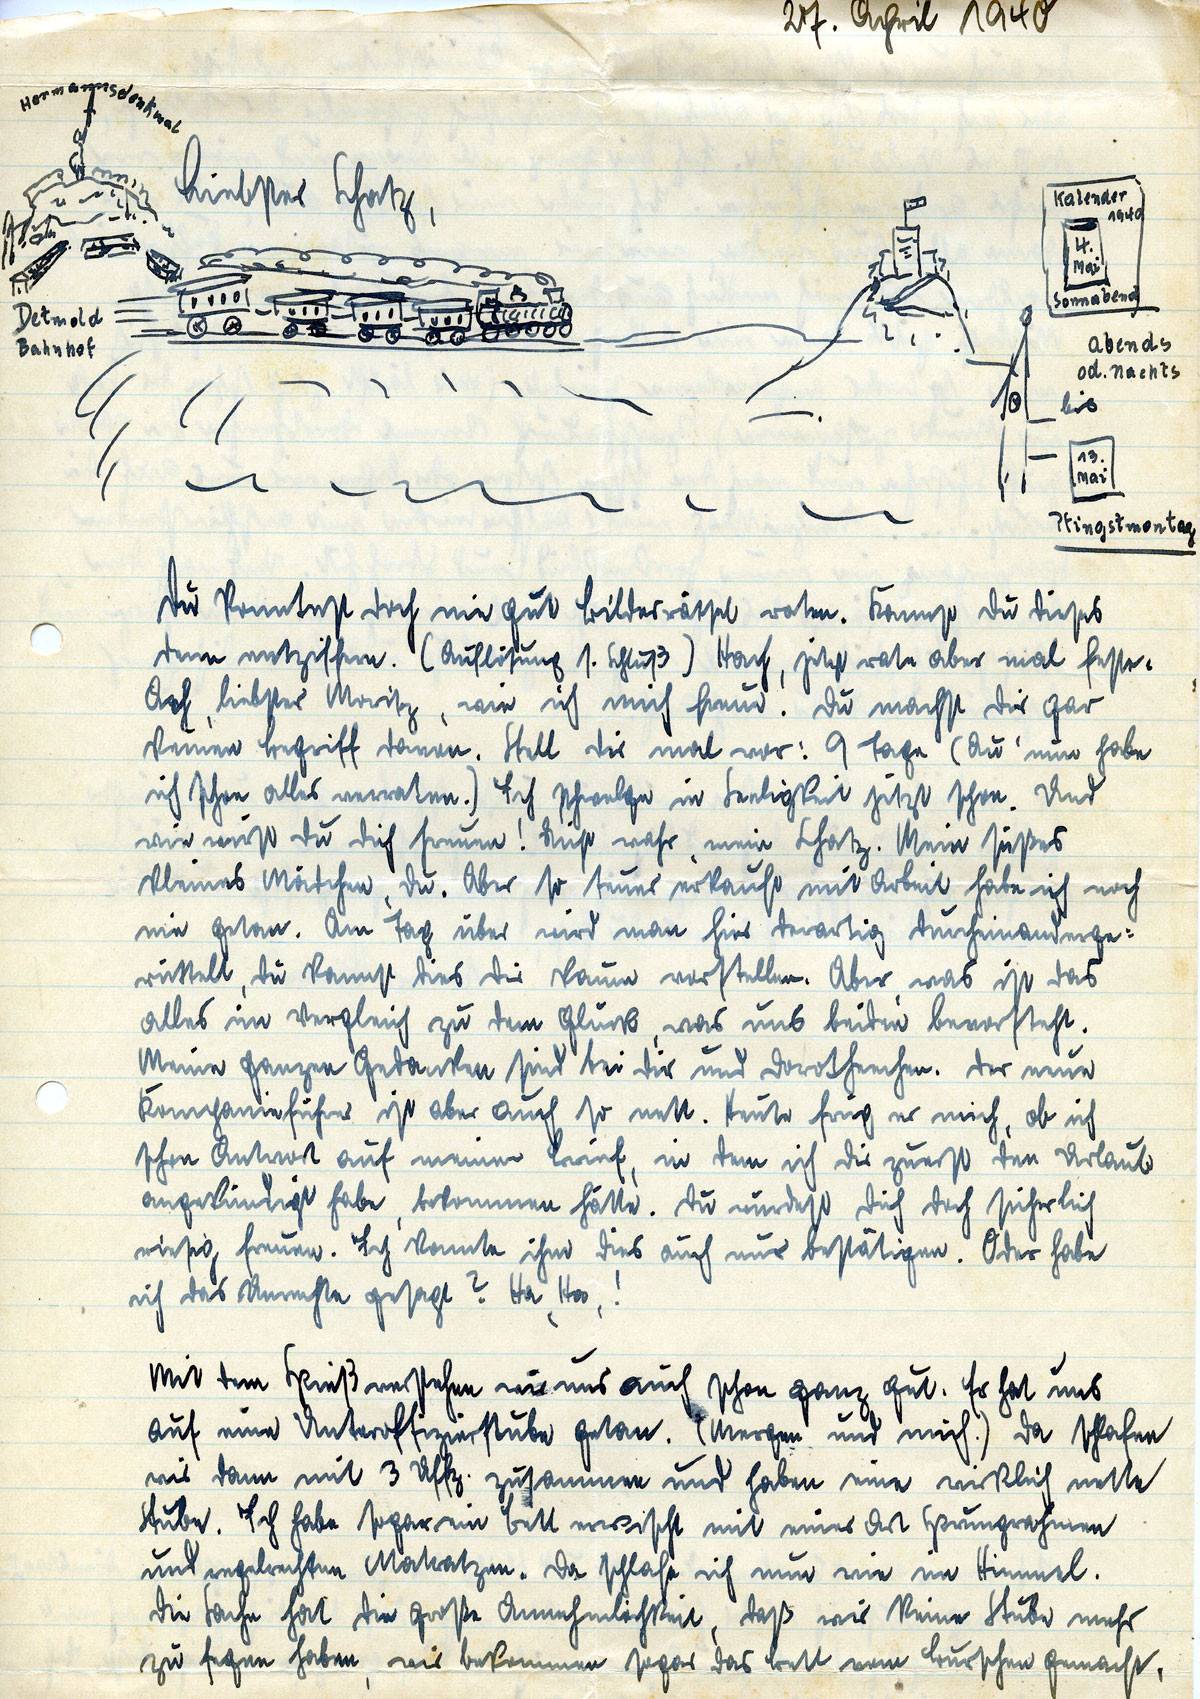 27. April 1940
Hermannsdenkmal
Liebster Schatz,
Kalender
1940
4.
Mai
Sonnabend
Detmold
Bahnhof
abends
od. nachts
bis
13.
Mai
Pfingstmontag
Du konntest doch nie gut Bilderrätsel raten. Kannst Du dieses
denn entziffern. (Auflösung s. Schluß) Hach, jetzt rate aber mal feste.
Ach, liebster Moritz, wie ich mich freue! Du machst Dir gar
keinen Begriff davon. Stell Dir mal vor: 9 Tage (Au' nun habe
ich schon alles verraten.) Ich schwelge in Seeligkeit jetzt schon. Und
wie wirst Du Dich freuen! Nicht wahr, mein Schatz. Mein süßes
kleines Mädchen, Du. Aber so teuer erkauft mit Arbeit habe ich noch
nie getan. Am Tag über wird man hier derartig durcheinanderge=
rüttelt, Du kannst dies Dir kaum vorstellen. Aber was ist das
alles im Vergleich zu dem Glück, was uns beiden bevorsteht.
Meine ganzen Gedanken sind bei Dir und Dorotheechen. Der neue
Kompanieführer ist aber auch so nett. Heute frug er mich, ob ich
schon Antwort auf meinen Brief, in dem ich Dir zuerst den Urlaub
angekündigt habe, bekommen hätte. Du würdest Dich doch sicherlich
riesig freuen. Ich konnte ihm dies auch nur bestätigen. Oder habe
ich das Unrechte gesagt? Ha, Ha,!
Mit dem Spieß verstehen wir uns auch schon ganz gut. Er hat uns
auf eine Unteroffizierstube getan. (Mergen und mich.) Da schlafen
wir dann mit 3 Uffz. zusammen und haben eine wirklich nette
Stube. Ich habe sogar ein Bett erwischt mit einer Art Sprungrahmen
und regelrechten Matratzen. Da schlafe ich nun wie im Himmel.
Die Sache hat die große Annehmlichkeit, daß wir keine Stube mehr
zu fegen haben, wir bekommen sogar das Bett vom Burschen gemacht,